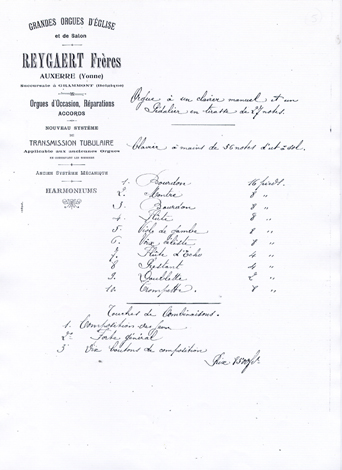 GRANDES ORGUES D'ÉGLISE
et de Salon
REYGAERT Frères
AUXERRE (Yonne)
Succursale à GRAMMONT (Belgique)
Orgues d'Occasion, Réparations
ACCORDS
NOUVEAU SYSTÈME
de
TRANSMISSION TUBULAIRE
Applicable aux anciennes Orgues
ANCIEN SYSTÈME MÉCANIQUE
HARMONIUMS
Orgue à un clavier manuel et un
Pédalier en tirasse de 27 notes.
Clavier à mains de 56 notes d'ut à sol.
1. Bourdon 16 pieds.
2. Montre 8 "
3. Bourdon 8 "
4. Flûte 8 "
5. Viole de gambe 8 "
6. Voix céleste 8 "
7. Flûte d'Echo 4 "
8. Prestant 4 "
9. Doublette 2 "
10. Trompette 8 "
Touches de Combinaisons.
1. Compositions des jeux
2. Forte général
3 boutons de composition
Prix